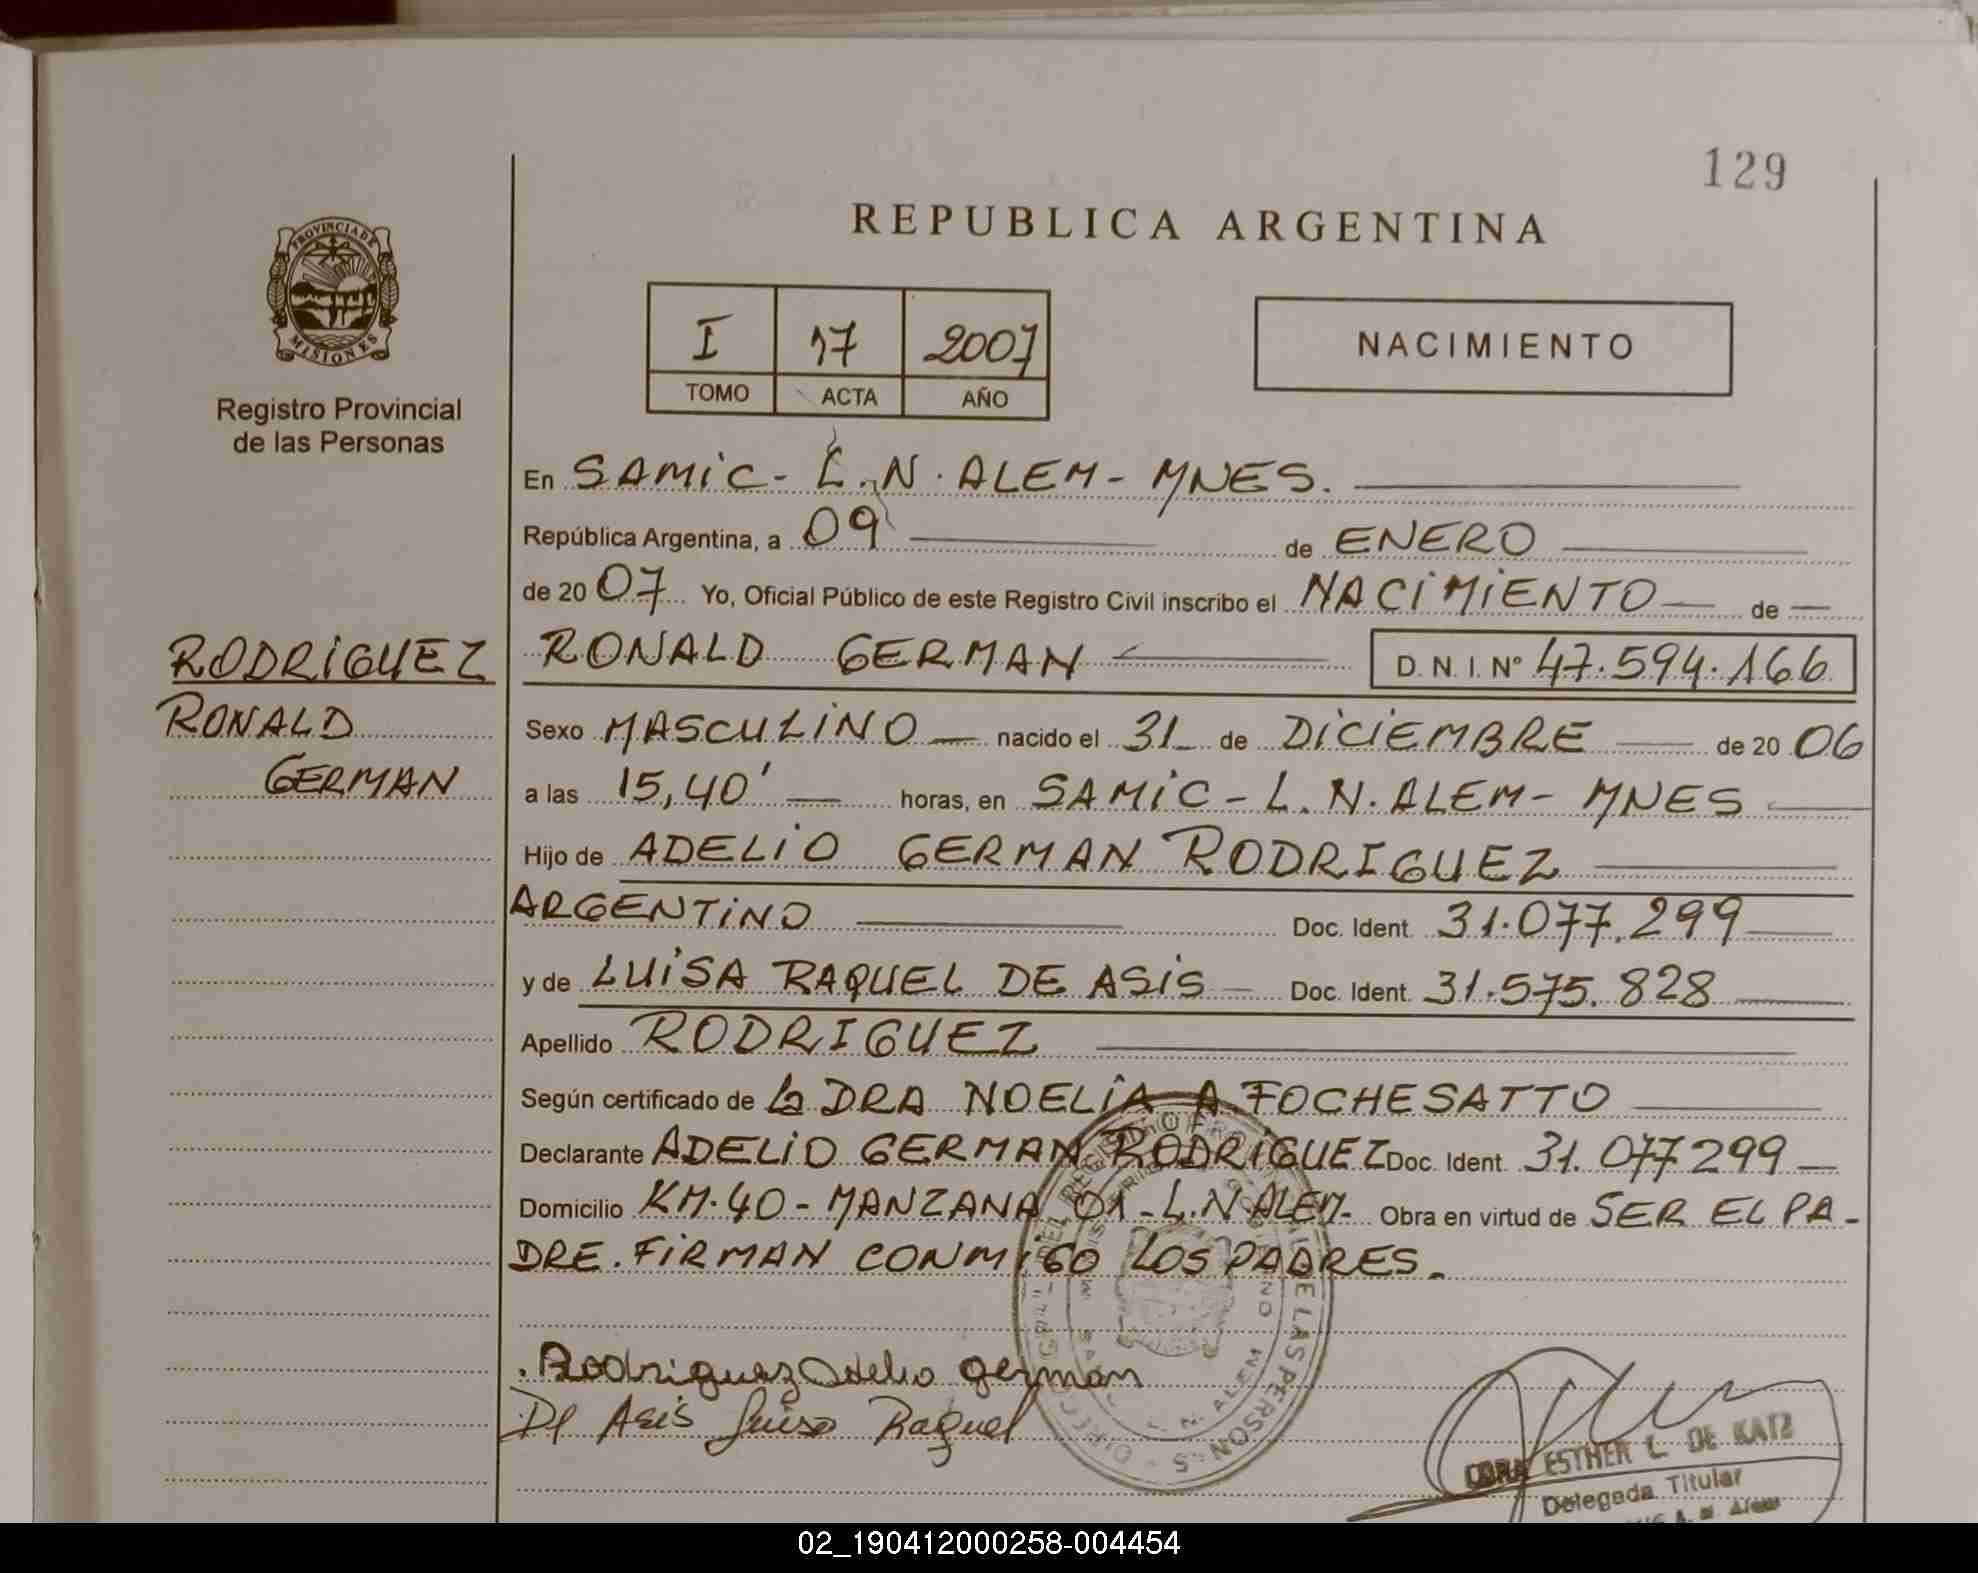 129
REPUBLICA ARGENTINA
PROVINCIA DE
MISIONES
Registro Provincial
de las Personas
I 17 2007
TOMO ACTA AÑO
NACIMIENTO
En SAMIC - L.N. ALEM - MNES.
República Argentina, a 09 de ENERO
de 2007 Yo, Oficial Público de este Registro Civil inscribo el NACIMIENTO de
RODRIGUEZ
RONALD
GERMAN
RONALD GERMAN D.N.I. Nº 47.594.166
Sexo MASCULINO nacido el 31 de DICIEMBRE de 2006
a las 15,40' horas, en SAMIC - L.N. ALEM - MNES
Hijo de ADELIO GERMAN RODRIGUEZ
ARGENTINO Doc. Ident. 31.077.299
y de LUISA RAQUEL DE ASIS Doc. Ident. 31.575.828
Apellido RODRIGUEZ
Según certificado de La DRA NOELIA A. FOCHESATTO
Declarante ADELIO GERMAN RODRIGUEZ Doc. Ident. 31.077299
Domicilio KM.40 - MANZANA 01 - L.N ALEM - Obra en virtud de SER EL PA-
DRE. FIRMAN CONMIGO LOS PADRES.
Rodriguez Adelio german
De Asis Luisa Raquel
ESTHER L. DE KATZ
Delegada Titular
02_190412000258-004454